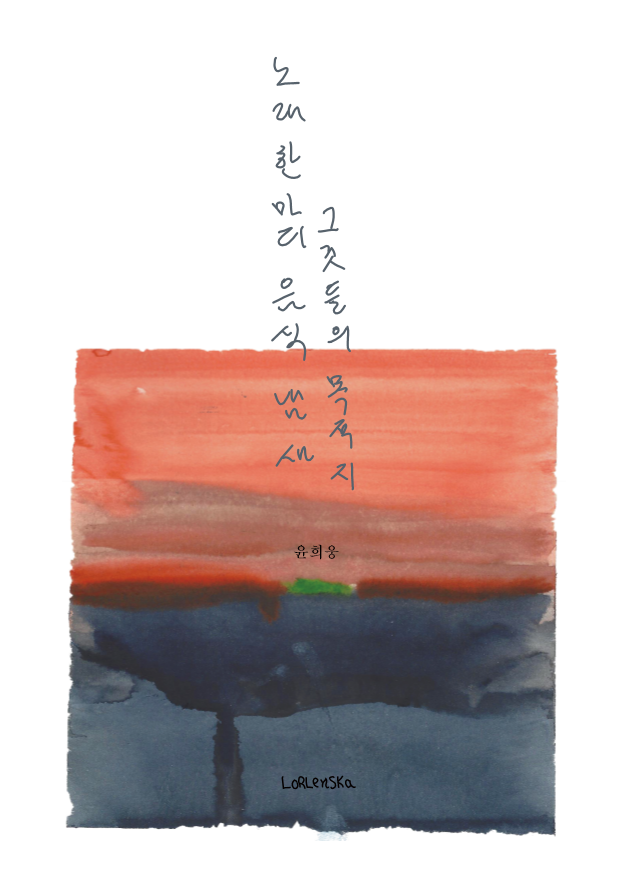 노래 한 마디 음식 냄새
그것들의 목적지
윤희웅
LORLenSKa